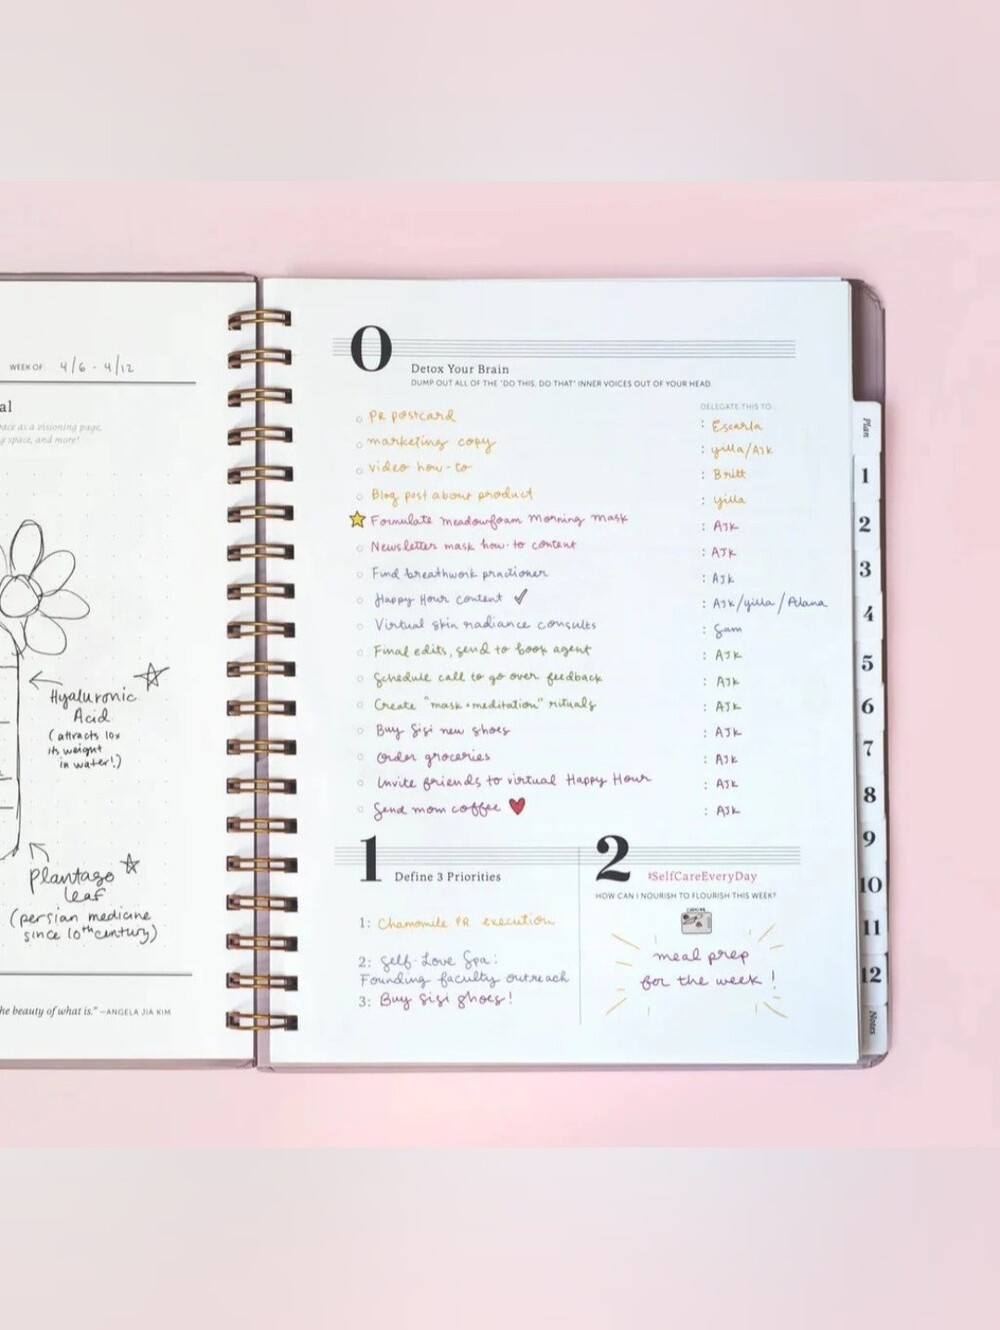 WEEK OF 4/6 - 4/12
al
pace as a visioning page,
g space, and more!
Hyaluronic
Acid
(attracts 10x
its weight
in water!)
Plantago
leaf
(persian medicine
since 10th century)
he beauty of what is." —ANGELA JIA KIM
0
Detox Your Brain
DUMP OUT ALL OF THE "DO THIS, DO THAT" INNER VOICES OUT OF YOUR HEAD.
DELEGATE THIS TO...
PR postcard : Escarla
marketing copy : yilla/AJK
video how-to : Britt
Blog post about product : yilla
Formulate meadowfoam morning mask : AJK
Newsletter mask how-to content : AJK
Find breathwork practioner : AJK
Happy Hour content ✓ : AJK/yilla/Alana
Virtual skin radiance consults : Sam
Final edits, send to book agent : AJK
Schedule call to go over feedback : AJK
Create "mask + meditation" rituals : AJK
Buy Sisi new shoes : AJK
Order groceries : AJK
Invite friends to virtual Happy Hour : AJK
Send mom coffee ♥ : AJK
1
Define 3 Priorities
1: Chamomile PR execution
2: Self-Love Spa:
Founding faculty outreach
3: Buy Sisi shoes!
2
#SelfCareEveryDay
HOW CAN I NOURISH TO FLOURISH THIS WEEK?
meal prep
for the week!
Plan
1
2
3
4
5
6
7
8
9
10
11
12
Notes